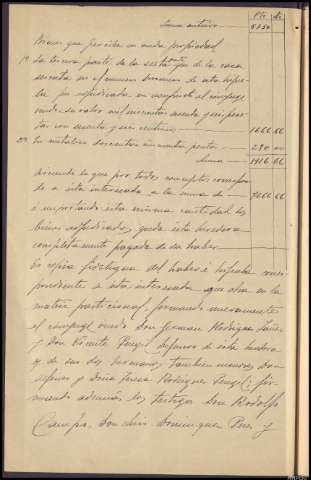 Pts Cs
Suma anterior
Bienes que percibe en nuda propiedad
1º La tercera parte de la parte de la casa
en el numero de esta
adjudicada en usufructo al conyuge
viudo. Su valor mil seiscientas sesenta y seis pese-
tas con sesenta y seis centimos 1666 66
2º En metalico doscientas cincuenta pesetas 250 00
Suma 1916 66
Asciende lo que por todos conceptos correspon-
de a esta interesada a la suma de 66
é importando esta misma cantidad los
bienes adjudicados, queda esta heredera
completamente pagada de su haber.
Es copia fidedigna del haber é hijuela corres-
pondiente a esta interesada que obra en la
matriz particional, firmando nuevamente
el conyuge viudo Don German Rodriguez
y Don Vicente defensor de esta heredera
y de sus dos hermanos tambien menores Don
y Doña Teresa Rodriguez fir-
mando además los testigos Don Rodolfo
Campo, Don Luis Dominguez y